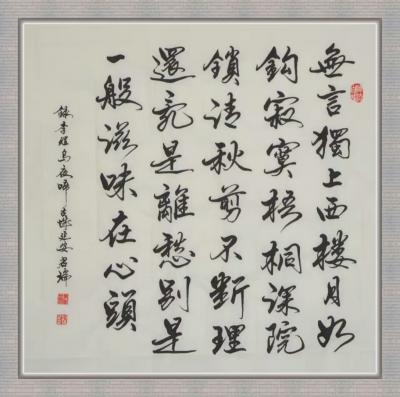 無言獨上西樓月如
鈎寂寞梧桐深院
鎖清秋剪不斷理
還亂是離愁別是
一般滋味在心頭
錄李煜烏夜啼